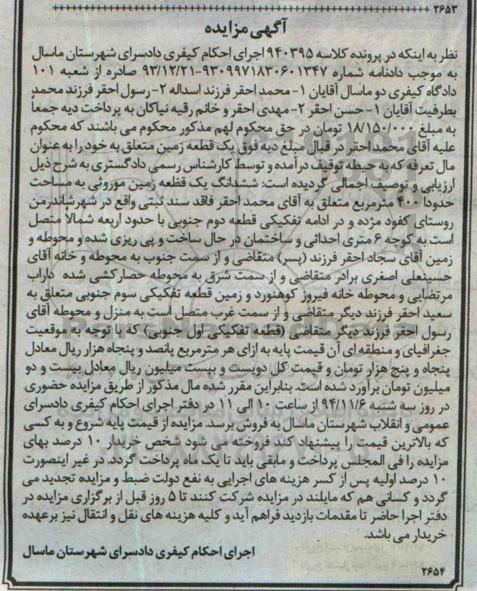 ۲۶۵۳
آگهی مزایده
نظر به اینکه در پرونده کلاسه ۹۴۰۳۹۵ اجرای احکام کیفری دادسرای شهرستان ماسال
به موجب دادنامه شماره ۹۳۰۹۹۷۱۸۳۰۶۰۱۳۴۷-۹۳/۱۲/۲۱ صادره از شعبه ۱۰۱
دادگاه کیفری دو ماسال آقایان ۱- محمد احقر فرزند اسداله ۲- رسول احقر فرزند محمد
بطرفیت آقایان ۱- حسن احقر ۲- مهدی احقر و خانم رقیه نیاکان به پرداخت دیه جمعاً
به مبلغ ۱۸/۱۵۰/۰۰۰ تومان در حق محکوم لهم مذکور محکوم می باشند که محکوم
علیه آقای محمد احقر در قبال مبلغ دیه فوق یک قطعه زمین متعلق به خود را به عنوان
مال تعرفه که به حیطه توقیف درآمده و توسط کارشناس رسمی دادگستری به شرح ذیل
ارزیابی و توصیف اجمالی گردیده است: ششدانگ یک قطعه زمین موروثی به مساحت
حدودا ۴۰۰ مترمربع متعلق به آقای محمد احقر فاقد سند ثبتی واقع در شهرشاندرمن
روستای کفود مژده و در ادامه تفکیکی قطعه دوم جنوبی با حدود اربعه شمالا متصل
است به کوچه ۶ متری احداثی و ساختمان در حال ساخت و پی ریزی شده و محوطه و
زمین آقای سجاد احقر فرزند (پسر) متقاضی و از سمت جنوب به محوطه و خانه آقای
حسینعلی اصغری برادر متقاضی و از سمت شرق به محوطه حصارکشی شده داراب
مرتضایی و محوطه خانه فیروز کوهنورد و زمین قطعه تفکیکی سوم جنوبی متعلق به
سعید احقر فرزند دیگر متقاضی و از سمت غرب متصل است به منزل و محوطه آقای
رسول احقر فرزند دیگر متقاضی (قطعه تفکیکی اول جنوبی) که با توجه به موقعیت
جغرافیای و منطقه ای آن قیمت پایه به ازای هر مترمربع پانصد و پنجاه هزار ریال معادل
پنجاه و پنج هزار تومان و قیمت کل دویست و بیست میلیون ریال معادل بیست و دو
میلیون تومان برآورد شده است. بنابراین مقرر شده مال مذکور از طریق مزایده حضوری
در روز سه شنبه ۹۴/۱۱/۶ از ساعت ۱۰ الی ۱۱ در دفتر اجرای احکام کیفری دادسرای
عمومی و انقلاب شهرستان ماسال به فروش برسد. مزایده از قیمت پایه شروع و به کسی
که بالاترین قیمت را پیشنهاد کند فروخته می شود شخص خریدار ۱۰ درصد بهای
مزایده را فی المجلس پرداخت و مابقی باید تا یک ماه پرداخت گردد. در غیر اینصورت
۱۰ درصد اولیه پس از کسر هزینه های اجرایی به نفع دولت ضبط و مزایده تجدید می
گردد و کسانی هم که مایلند در مزایده شرکت کنند تا ۵ روز قبل از برگزاری مزایده در
دفتر اجرا حاضر تا مقدمات بازدید فراهم آید و کلیه هزینه های نقل و انتقال نیز برعهده
خریدار می باشد.
اجرای احکام کیفری دادسرای شهرستان ماسال
۲۶۵۴